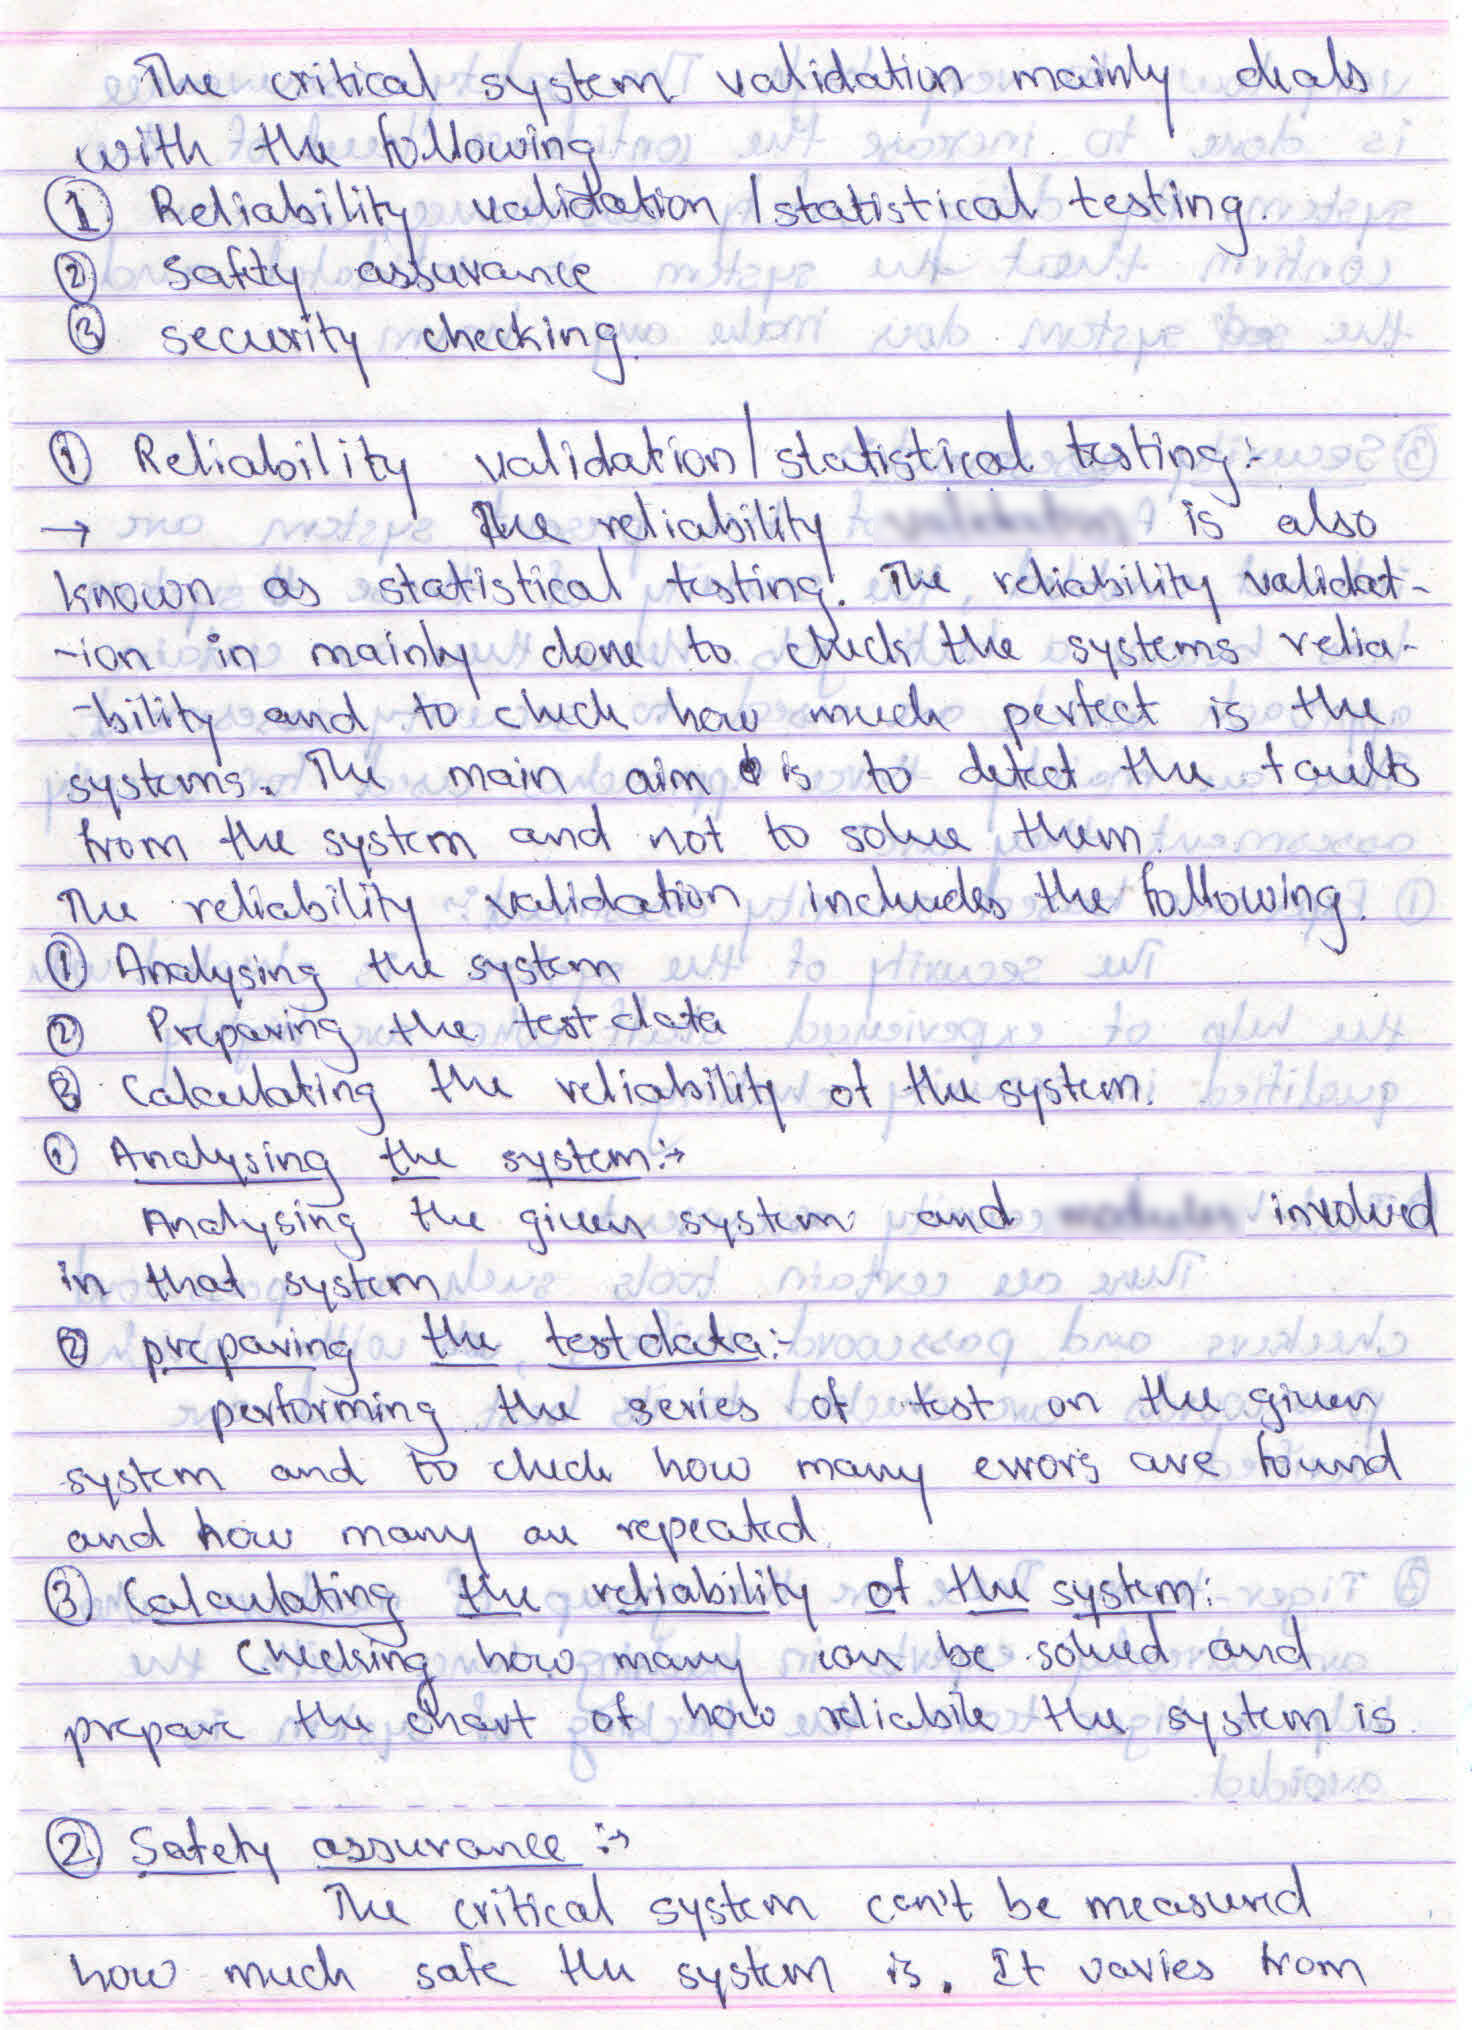 The critical system validation mainly deals
with the following
① Reliability validation / statistical testing.
② Safety assurance
③ security checking.
① Reliability validation/statistical testing:-
→ The reliability is also
known as statistical testing. The reliability validat-
-ion in mainly done to check the systems relia-
-bility and to check how much perfect is the
systems. The main aim is to detect the faults
from the system and not to solve them.
The reliability validation includes the following.
① Analysing the system
② Preparing the test data
③ Calculating the reliability of the system.
① Analysing the system:→
Analysing the given system and involved
in that system
② preparing the test data:-
performing the series of test on the given
system and to check how many errors are found
and how many are repeated.
③ Calculating the reliability of the system:
Checking how many can be solved and
prepare the chart of how reliabile the system is.
② Safety assurance :→
The critical system can't be measured
how much safe the system is. It varies from